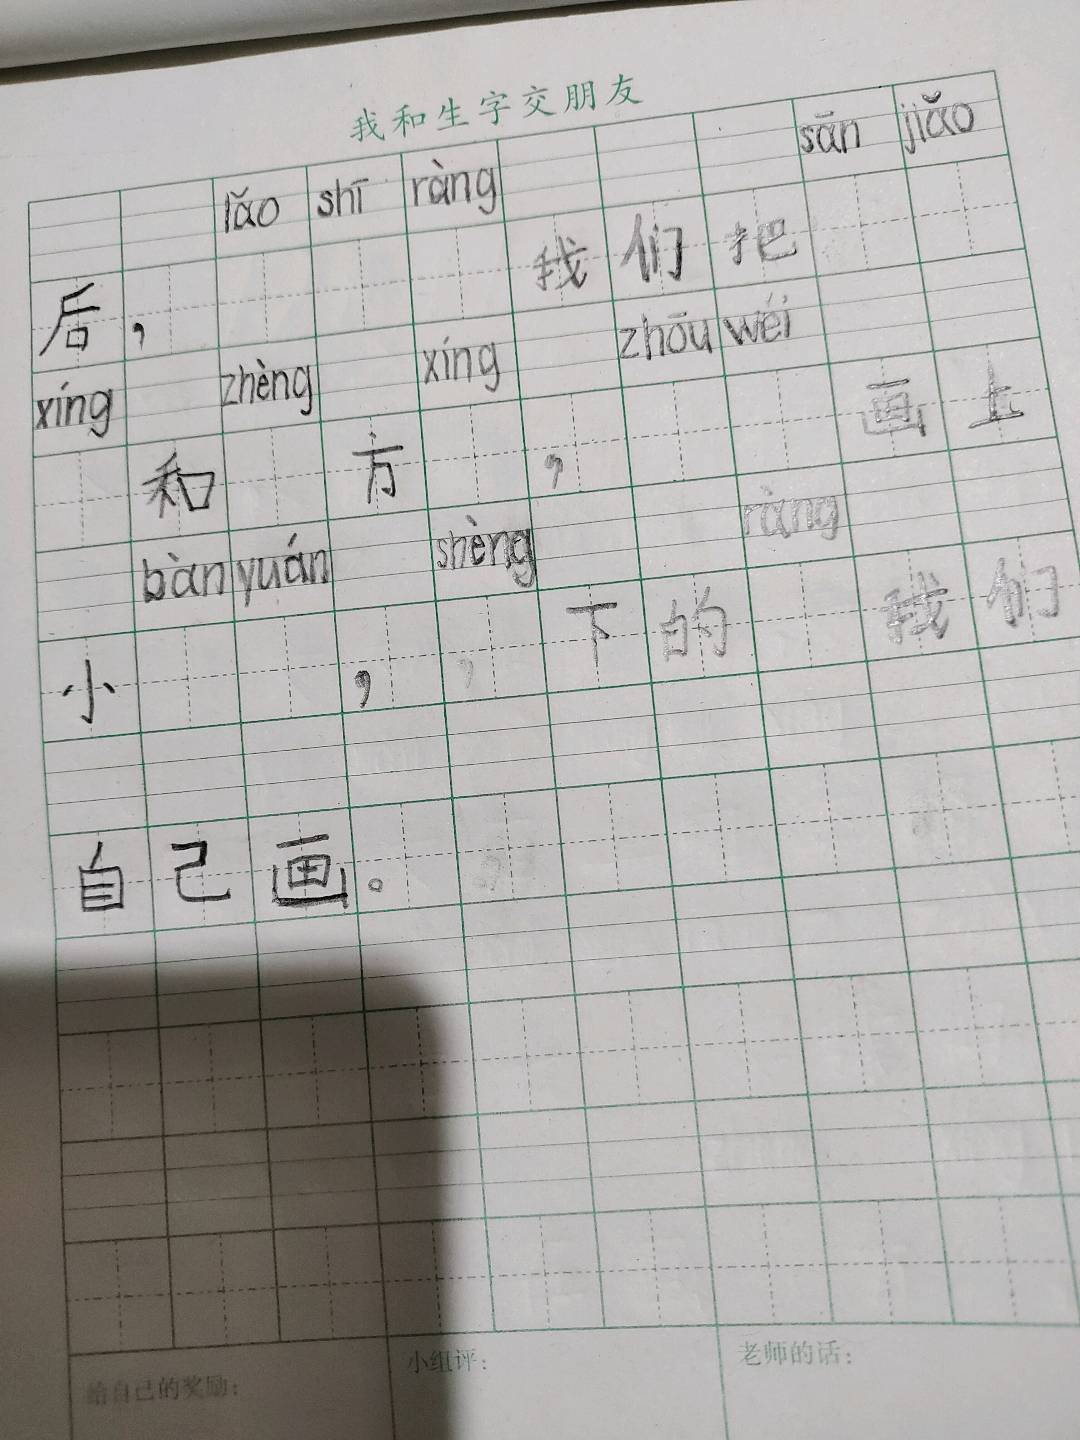 我和生字交朋友
lǎo shī ràng sān jiǎo
后，我们把
xíng zhèng xíng zhōu wéi
和方，画上
bàn yuán shèng ràng
小，，下的我们
自己画。
给自己的奖励：
小组评：
老师的话：